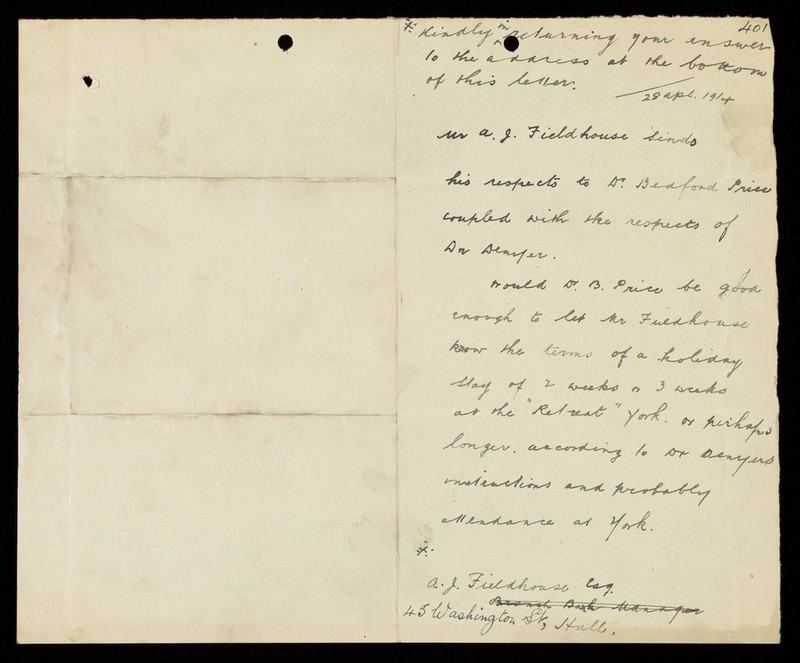 401
* Kindly in returning your answer
to the address at the bottom
of this letter.
28 Apl. 1914
Mr A. J. Fieldhouse sends
his respects to Dr. Bedford Price
coupled with the respects of
Dr Denyer.
Would Dr. B. Price be good
enough to let Mr Fieldhouse
know the terms of a holiday
stay of 2 weeks or 3 weeks
at the "Retreat" York. or perhaps
longer. according to Dr Denyers
instructions and probably
attendance at York.
*
A. J. Fieldhouse Esq.
Branch Bank Manager
45 Washington St, Hull.